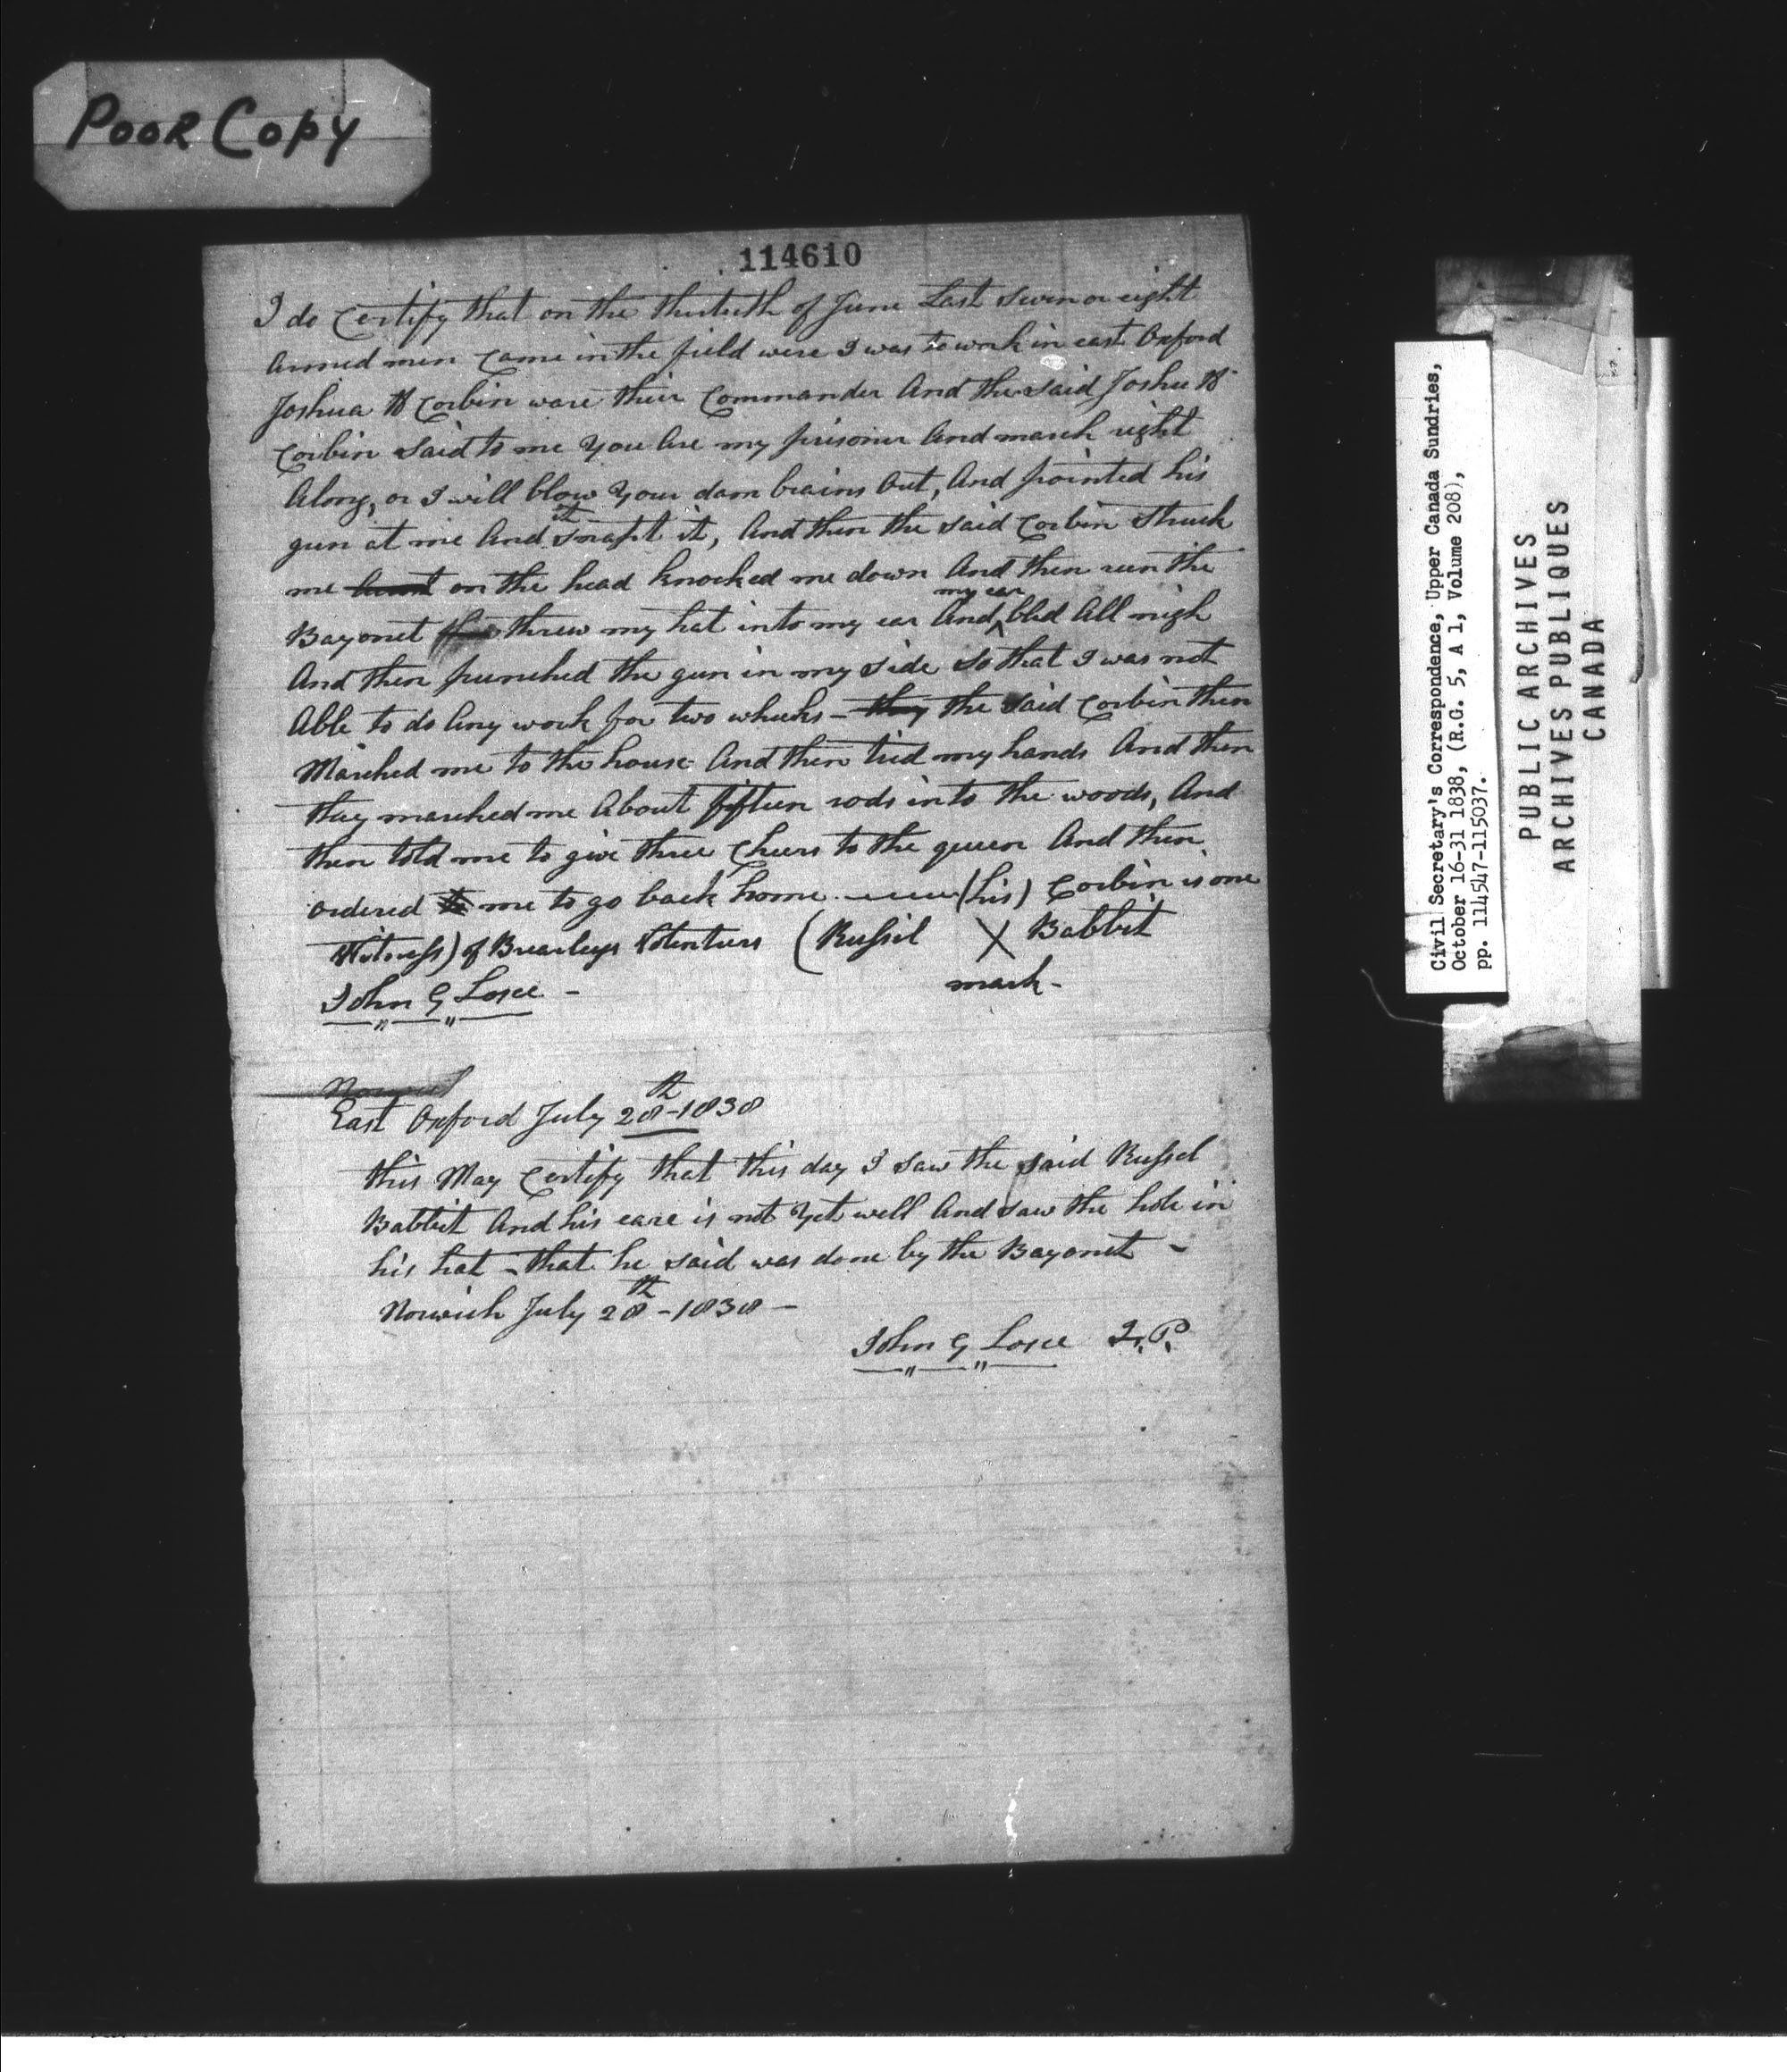 Poor Copy
114610
I do Certify that on the thirtieth of June Last seven or eight
Armed men Came in the field were I was to work in east Oxford
Joshua H Corbin ware their Commander And the said Joshu H
Corbin said to me You Are my prisoner And march right
Along, or I will blow Your dam brains Out, And pointed his
gun at me And it snapt it, And then the said Corbin struck
me on the head knocked me down And then run the
Bayonet threw my hat into my ear And my ear bled All nigh
And then punched the gun in my side so that I was not
Able to do Any work for two wheeks - they the said Corbin then
Marched me to the house And then tied my hands And then
they marched me About fifteen rods into the woods, And
then told me to give three Cheers to the queen And then
ordered to me to go back home (his) Corbin is one
Witness) of Brearleys Volentiers (Russil X Babbit
John G Losee - mark -
Norwich
East Oxford July 28th - 1838
this May Certify that this day I saw the said Russel
Babbit And his eare is not Yet well And saw the hole in
his hat - that he said was done by the Bayonet -
Norwich July 28th - 1838 -
John G Losee J.P.
Civil Secretary's Correspondence, Upper Canada Sundries,
October 16-31 1838, (R.G. 5, A 1, Volume 208),
pp. 114547-115037.
PUBLIC ARCHIVES
ARCHIVES PUBLIQUES
CANADA